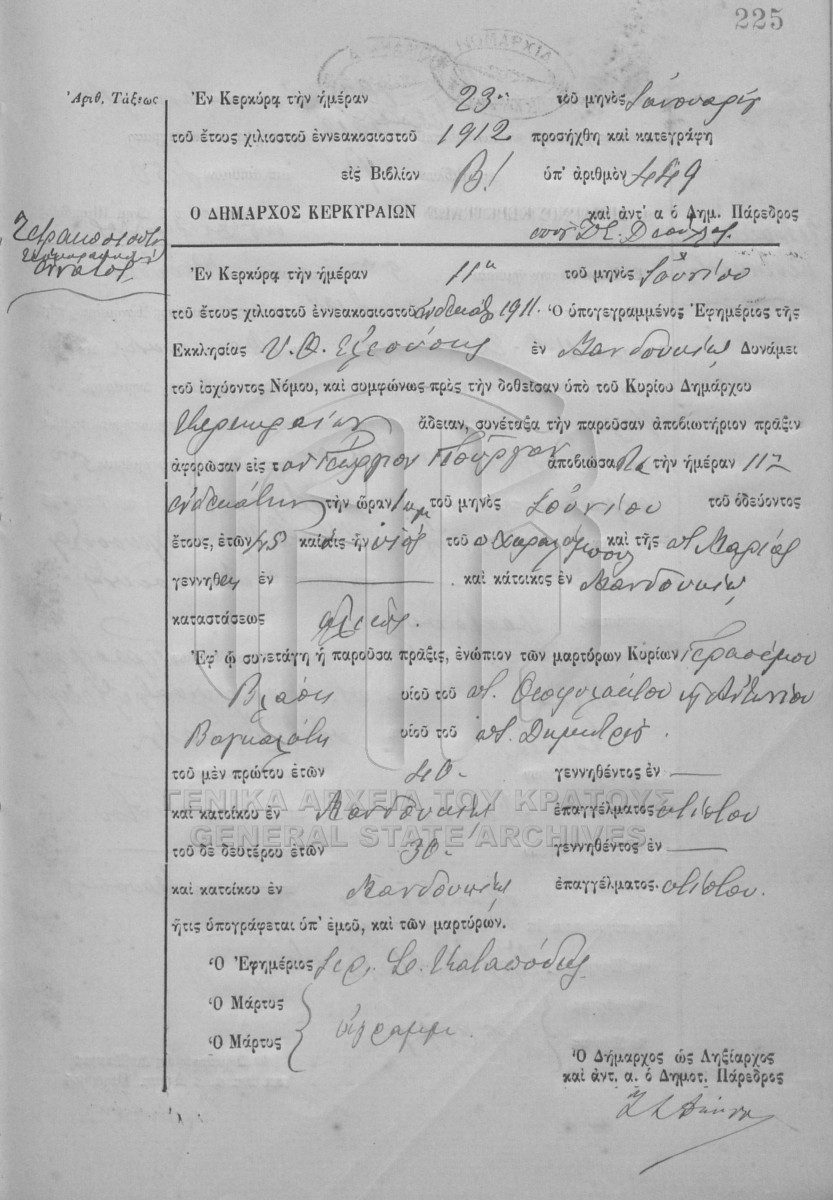 225
ΝΟΜΑΡΧΙΑ
Ἀριθ. Τάξεως
Ἐν Κερκύρᾳ τὴν ἡμέραν 23ην τοῦ μηνὸς Ἰανουαρίου
τοῦ ἔτους χιλιοστοῦ ἐννεακοσιοστοῦ 1912 προσήχθη καὶ κατεγράφη
εἰς Βιβλίον Β! ὑπ' ἀριθμὸν 449
Ο ΔΗΜΑΡΧΟΣ ΚΕΡΚΥΡΑΙΩΝ καὶ ἀντ' α ὁ Δημ. Πάρεδρος
Τετρακοσιοστὸν
ἔννατον
Ἐν Κερκύρᾳ τὴν ἡμέραν 11η τοῦ μηνὸς Ἰουνίου
τοῦ ἔτους χιλιοστοῦ ἐννεακοσιοστοῦ ἑνδεκάτ 1911. Ὁ ὑπογεγραμμένος Ἐφημέριος τῆς
Ἐκκλησίας Υ. Θ. Ἐλεούσης ἐν Μανδουκίῳ Δυνάμει
τοῦ ἰσχύοντος Νόμου, καὶ συμφώνως πρὸς τὴν δοθεῖσαν ὑπὸ τοῦ Κυρίου Δημάρχου
Κερκυραίων ἄδειαν, συνέταξα τὴν παροῦσαν ἀποβιωτήριον πρᾶξιν
ἀφορῶσαν εἰς τ ὸν Γεώργιον ἀποβιώσα τὴν ἡμέραν 11η
ἑνδεκάτην τὴν ὥραν 1 μμ τοῦ μηνὸς Ἰουνίου τοῦ ὁδεύοντος
ἔτους, ἐτῶν 45 καὶ ὅς ἦν υἱὸς τοῦ π Χαραλάμπους καὶ τῆς ποτ. Μαρίας
γεννηθεὶς ἐν — καὶ κάτοικος ἐν Μανδουκίῳ
καταστάσεως ἁλιεύς.
Ἐφ' ᾧ συνετάγη ἡ παροῦσα πρᾶξις, ἐνώπιον τῶν μαρτύρων Κυρίων Γερασίμου
Βλάση υἱοῦ τοῦ ποτ. Θεοφυλάκτου κ Ἀντωνίου
Βαγκαλάτη υἱοῦ τοῦ ποτ. Δημητρίου.
τοῦ μὲν πρώτου ἐτῶν 40 - γεννηθέντος ἐν —
ΓΕΝΙΚΑ ΑΡΧΕΙΑ ΤΟΥ ΚΡΑΤΟΥΣ
καὶ κατοίκου ἐν Μανδουκίῳ ἐπαγγέλματος κτίστου
GENERAL STATE ARCHIVES
τοῦ δὲ δευτέρου ἐτῶν 30 - γεννηθέντος ἐν —
καὶ κατοίκου ἐν Μανδουκίῳ ἐπαγγέλματος κτίστου.
ἥτις ὑπογράφεται ὑπ' ἐμοῦ, καὶ τῶν μαρτύρων.
Ὁ Ἐφημέριος Ἱερ. Σπ. Καταπόδης
Ὁ Μάρτυς
ἀγράμμ.
Ὁ Μάρτυς
Ὁ Δήμαρχος ὡς Ληξίαρχος
καὶ ἀντ. α. ὁ Δημοτ. Πάρεδρος